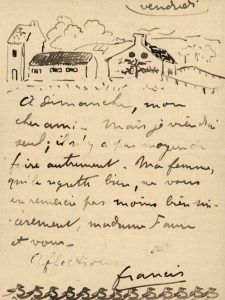 vendredi
A dimanche, mon
cher ami - Mais je viendrai
seul ; il n'y a pas moyen de
faire autrement. Ma femme,
qui le regrette bien, ne vous
en remercie pas moins bien sin-
cèrement, madame Faure
et vous -
Affections
Francis